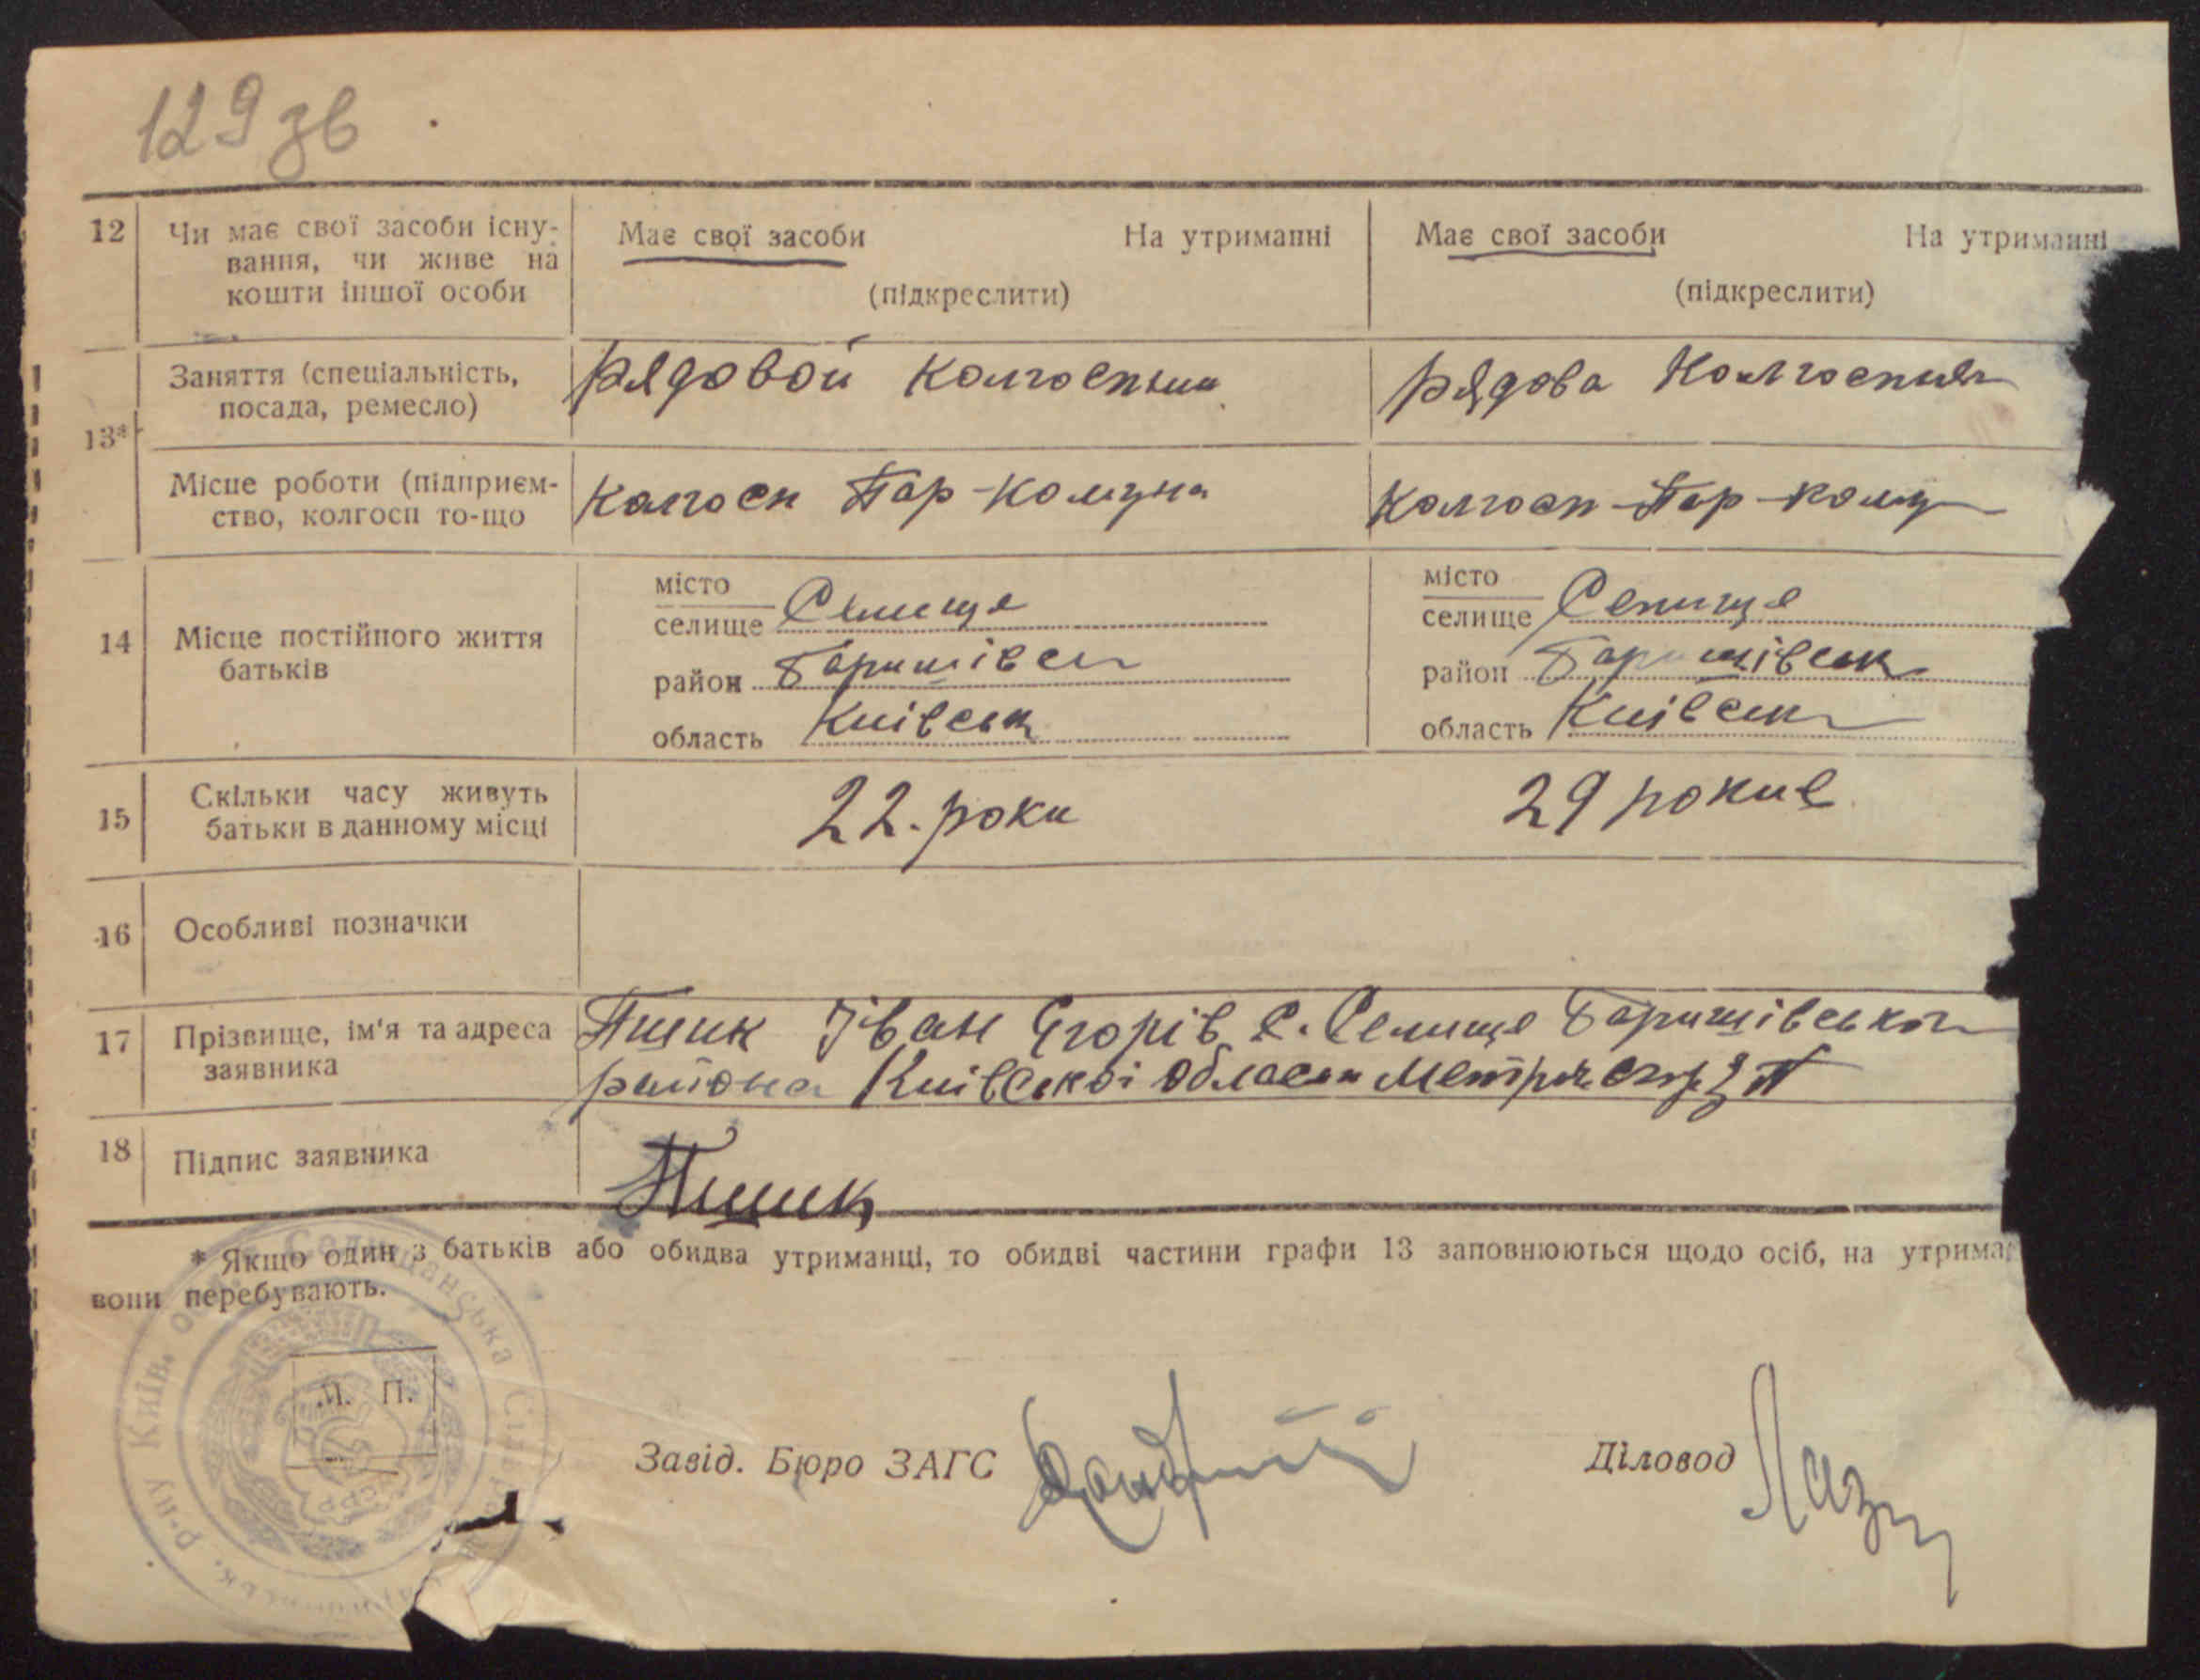 129 зв
12 Чи має свої засоби існу- Має свої засоби На утриманні Має свої засоби На утриманні
вання, чи живе на
кошти іншої особи (підкреслити) (підкреслити)
Заняття (спеціальність, Рядовой колгоспник Рядова Колгоспня
посада, ремесло)
13*
Місце роботи (підприєм- Колгосп Пар-Комуна Колгосп Пар-кому
ство, колгосп то-що
14 Місце постійного життя батьків
місто місто
селище Селище селище Селище
район Баришівсь район Баришівськ
область Київськ область Київськ
15 Скільки часу живуть 22. роки 29 рокив
батьки в данному місці
16 Особливі позначки
17 Прізвище, ім'я та адреса Пшик Іван Єгорів с. Селище Баришівсько
заявника района Київської області
18 Підпис заявника Пшик
* Якщо один з батьків або обидва утриманці, то обидві частини графи 13 заповнюються щодо осіб, на утрима
вони перебувають.
Селищанська Сільрада
р-ну Київ. обл.
М. П.
Завід. Бюро ЗАГС Діловод